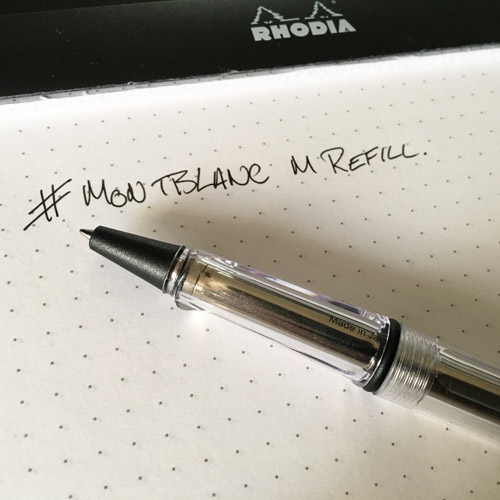 RHODIA
# MONTBLANC M REFILL.
Made in Ja